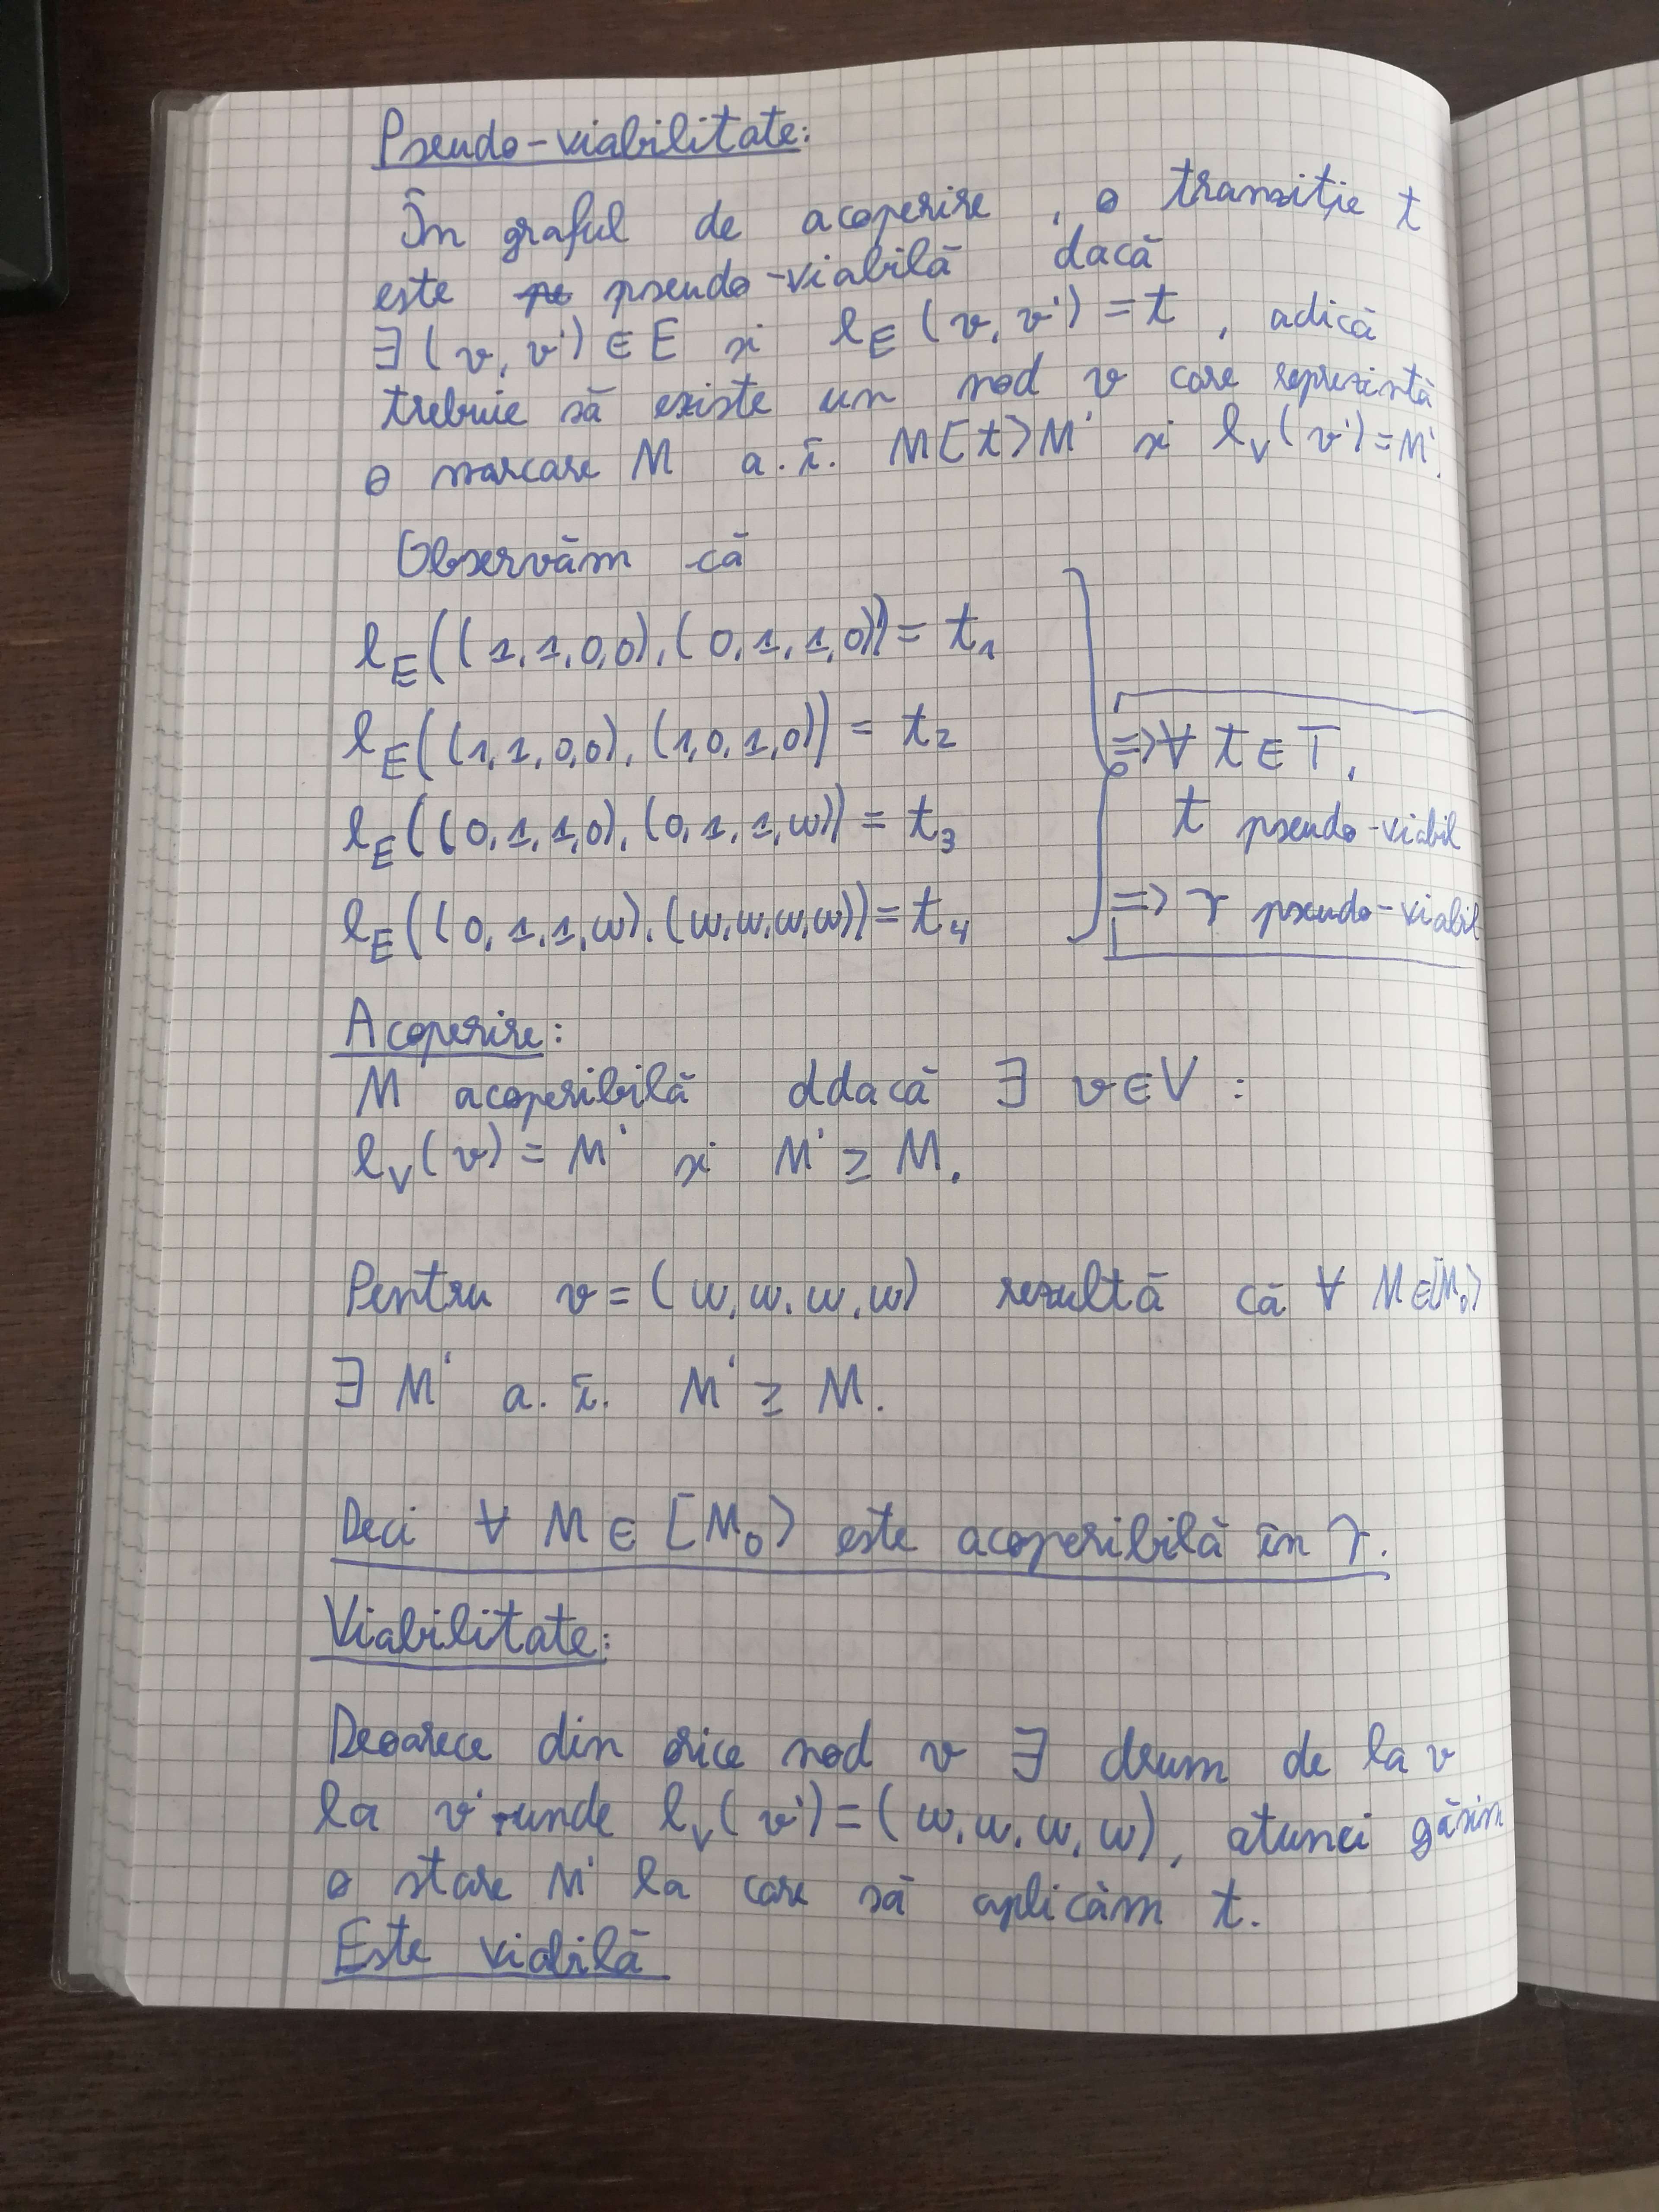 Pseudo-viabilitate:
În graful de acoperire, o tranziție t
este pseudo-viabilă dacă
∃ (v, v') ∈ E si l_E (v, v') = t, adică
trebuie să existe un nod v care reprezintă
o marcare M a.î. M[t>M' si l_V(v')=M'.
Observăm că
l_E((1,1,0,0),(0,1,1,0)) = t_1
l_E((1,1,0,0),(1,0,1,0)) = t_2
l_E((0,1,1,0),(0,1,1,ω)) = t_3
l_E((0,1,1,ω),(ω,ω,ω,ω)) = t_4
=> ∀ t ∈ T,
t pseudo-viabil
=> γ pseudo-viabil
Acoperire:
M acoperibilă ddacă ∃ v∈V :
l_V(v) = M' si M' ≥ M.
Pentru v = (ω,ω,ω,ω) rezultă că ∀ M∈[M_0>
∃ M' a.î. M' ≥ M.
Deci ∀ M ∈ [M_0> este acoperibilă în γ.
Viabilitate:
Deoarece din orice nod v ∃ drum de la v
la v' unde l_V(v') = (ω,ω,ω,ω), atunci găsim
o stare M' la care să aplicăm t.
Este viabilă